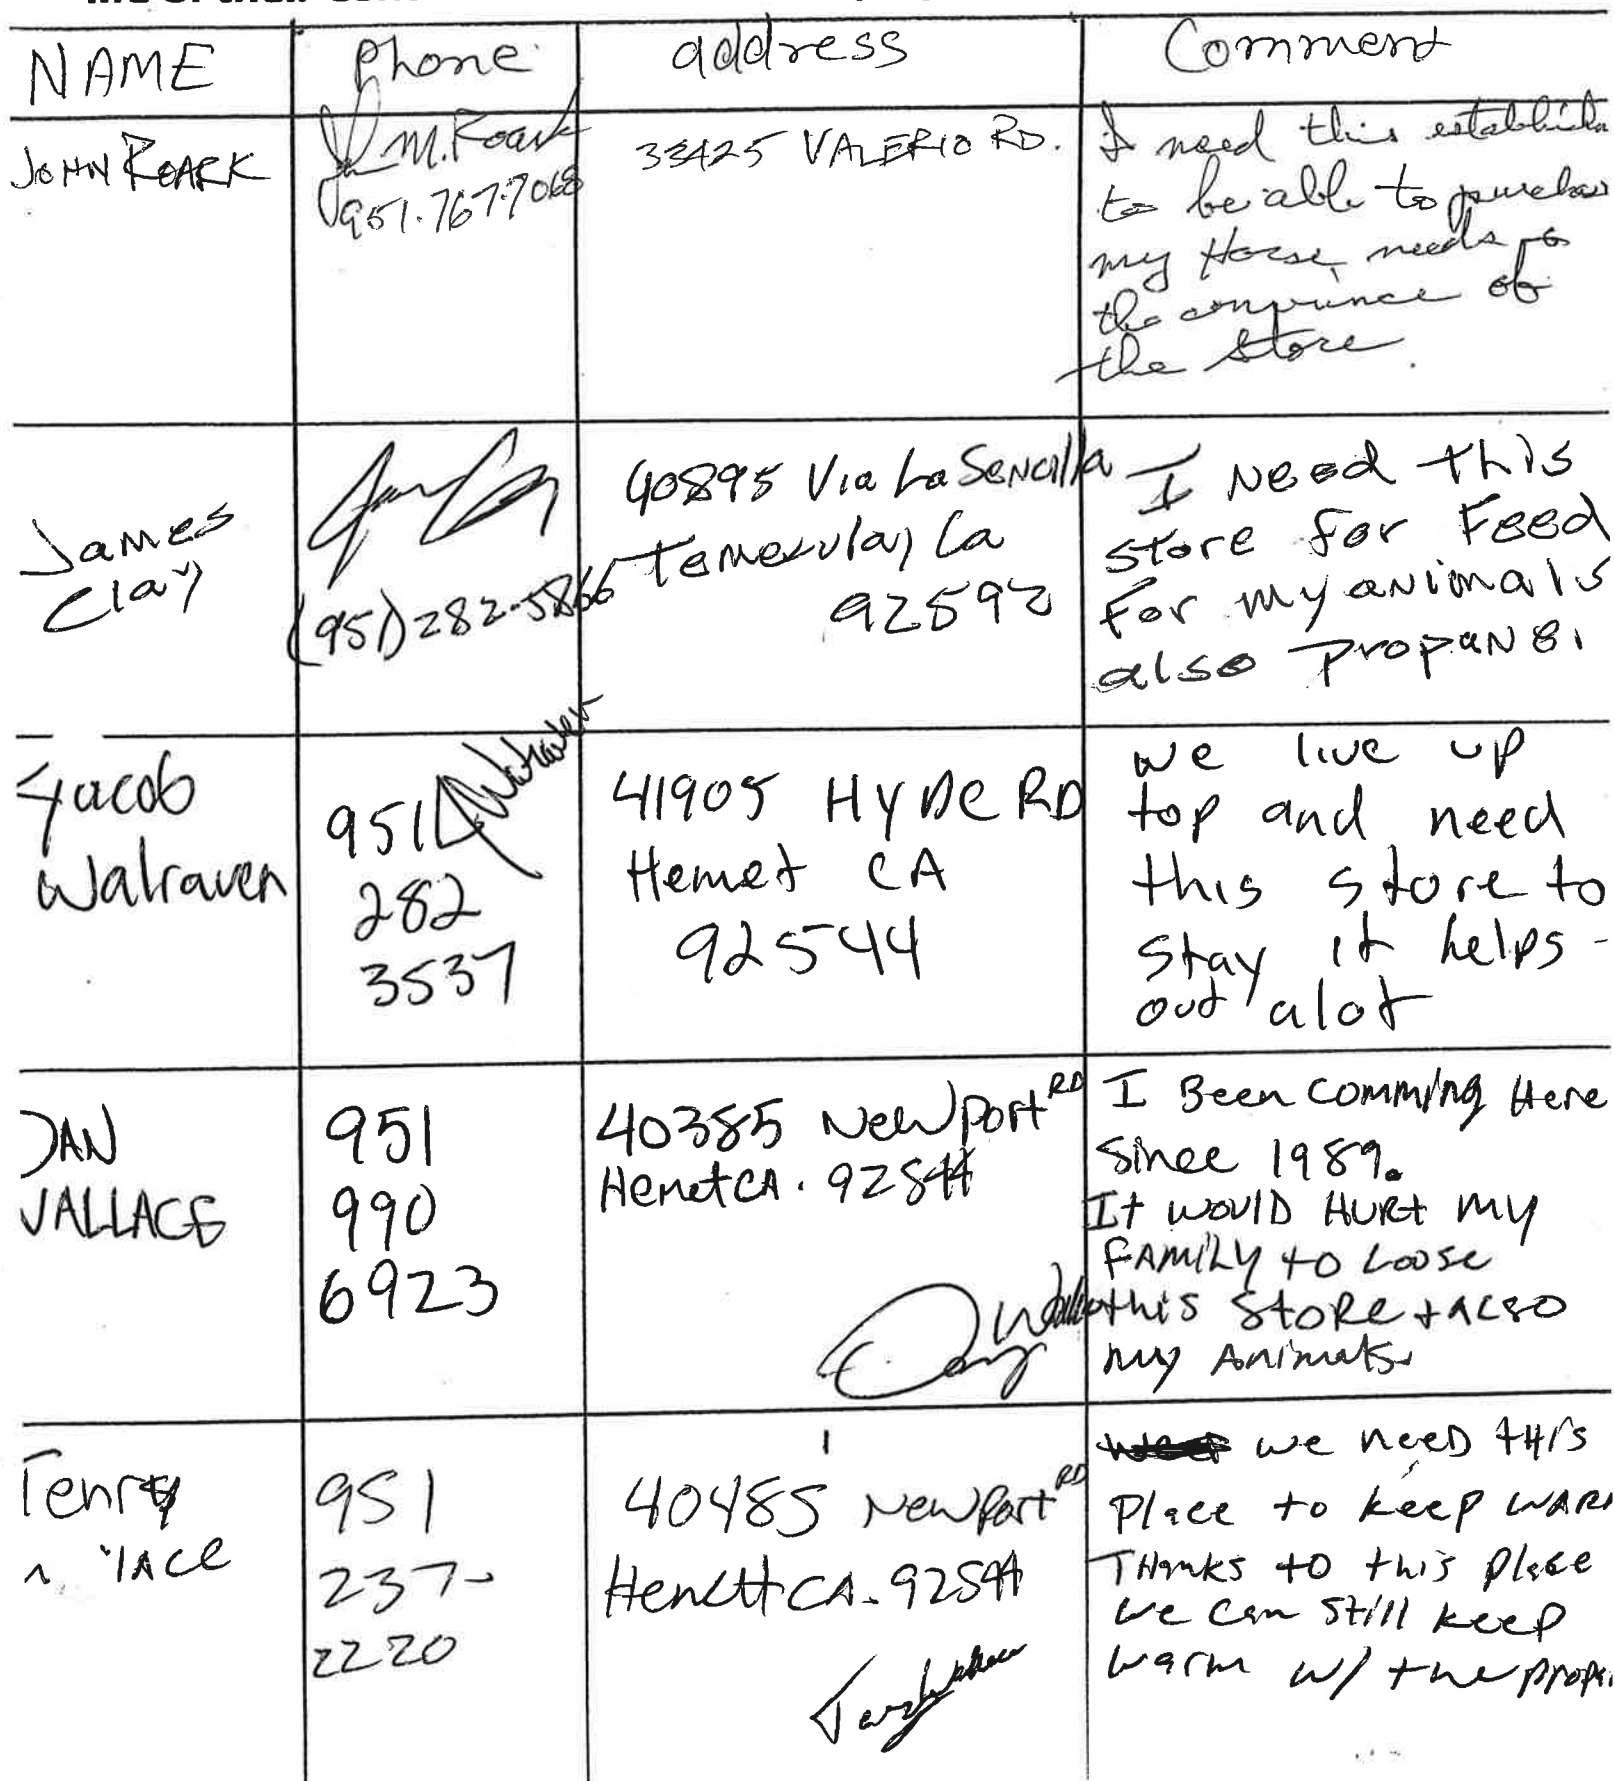 NAME
phone
address
Comment
JOHN ROARK
J M. Roark
951.767.7068
33425 VALERIO RD.
I need this
to be able to
my Horse needs
the convince of
the store.
James
Clay
(951) 282-5866
40895 Via La Sencilla
Temecula, Ca
92592
I Need this
store for Feed
For my animals
also propane.
Yacob
Walraven
951
282
3537
Walraven
41905 HYDE RD
Hemet CA
92544
we live up
top and need
this store to
stay it helps
out alot
DAN
WALLACE
951
990
6923
40385 Newport RD
Hemet CA. 92544
I Been comming Here
since 1989.
It would HURt my
FAMILY to Loose
this StoRe + ALSO
my Animals.
Terry
951
237-
2220
40485 Newport RD
Hemett CA. 92544
we need tHis
Place to keep
THanks to this place
we can still keep
warm w/ the